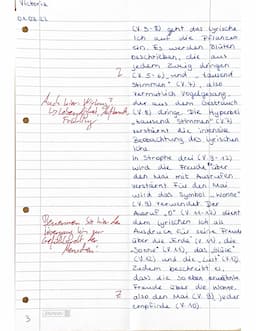 Victoria
02.02.22
(V. 5-8) geht das lyrische
Ich auf die Pflanzen
ein. Es werden Blüten
beschrieben, die aus
jedem Zweig dringen
(V. 5-6) und „tausend
Stimmen" (V. 7), also
vermutlich Vogelgesang,
der aus dem Gesträuch
(V. 8) dringe. Die Hyperbel
„tausend Stimmen" (V. 7)
verstärkt die intensive
Beobachtung des lyrischen
Ichs.
In Strophe drei (V. 9-12)
wird die Freude über
den Mai mit Ausrufen
verstärkt. Für den Mai
wird das Symbol „Wonne"
(V. 9) verwendet. Der
Ausruf „O" (V. 11-12) dient
dem lyrischen Ich als
Ausdruck für seine Freude
über die „Erde" (V. 11), die
„Sonne" (V. 11), das „Glück"
(V. 12) und die „Lust" (V. 12).
Zudem beschreibt es,
dass die soeben erwähnte
Freude über die Wonne,
also den Mai (V. 9) jeder
empfinde (V. 10).
Z
Auch hier: Wirkung?
Frühling
Z
3